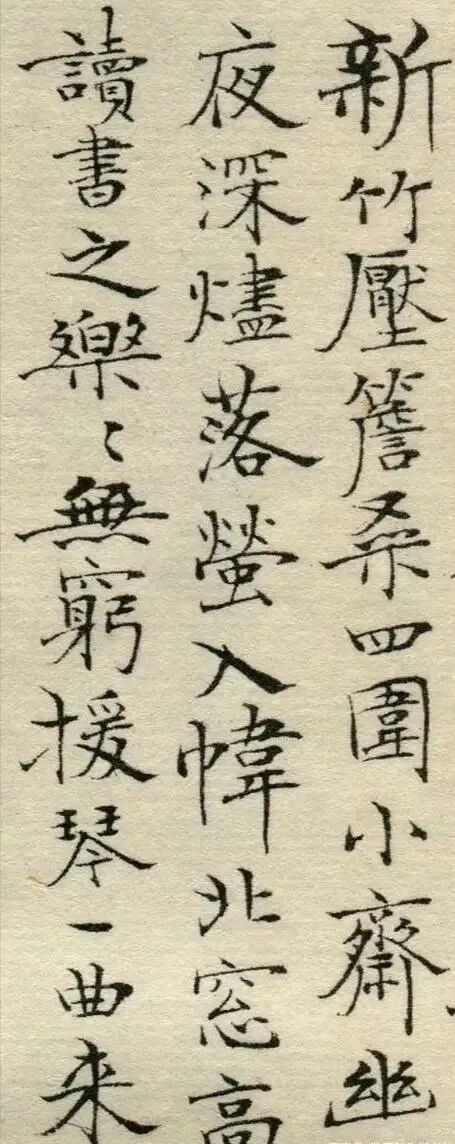 新竹壓簷桑四圍小齋幽
夜深燼落螢入幃北窓高
讀書之樂〻無窮援琴一曲来